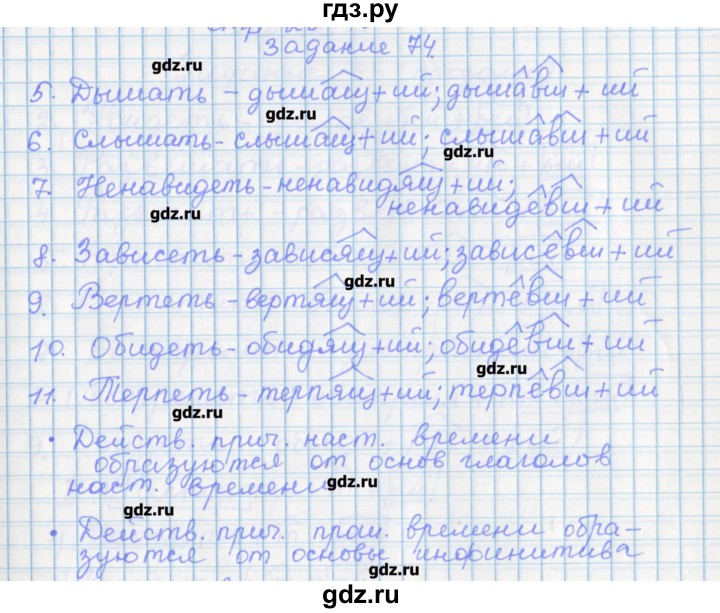 гдз.ру
Задание 74.
gdz.ru
5. Дышать - дышащ + ий; дышавш + ий
gdz.ru
6. Слышать - слышащ + ий; слышавш + ий
gdz.ru
7. Ненавидеть - ненавидящ + ий;
gdz.ru
ненавидевш + ий
8. Зависеть - зависящ + ий; зависевш + ий
gdz.ru
9. Вертеть - вертящ + ий; вертевш + ий
10. Обидеть - обидящ + ий; обидевш + ий
gdz.ru
11. Терпеть - терпящ + ий; терпевш + ий
gdz.ru
• Действ. прич. наст. времени
образуются от основ глаголов
наст. времени
gdz.ru
gdz.ru
• Действ. прич. прош. времени обра-
зуются от основы инфинитива
gdz.ru
gdz.ru